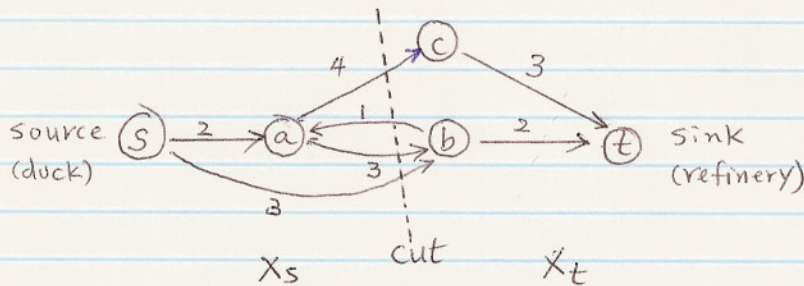 c
4
3
1
source
(duck)
s
2
a
b
2
t
sink
(refinery)
3
3
cut
Xs
Xt